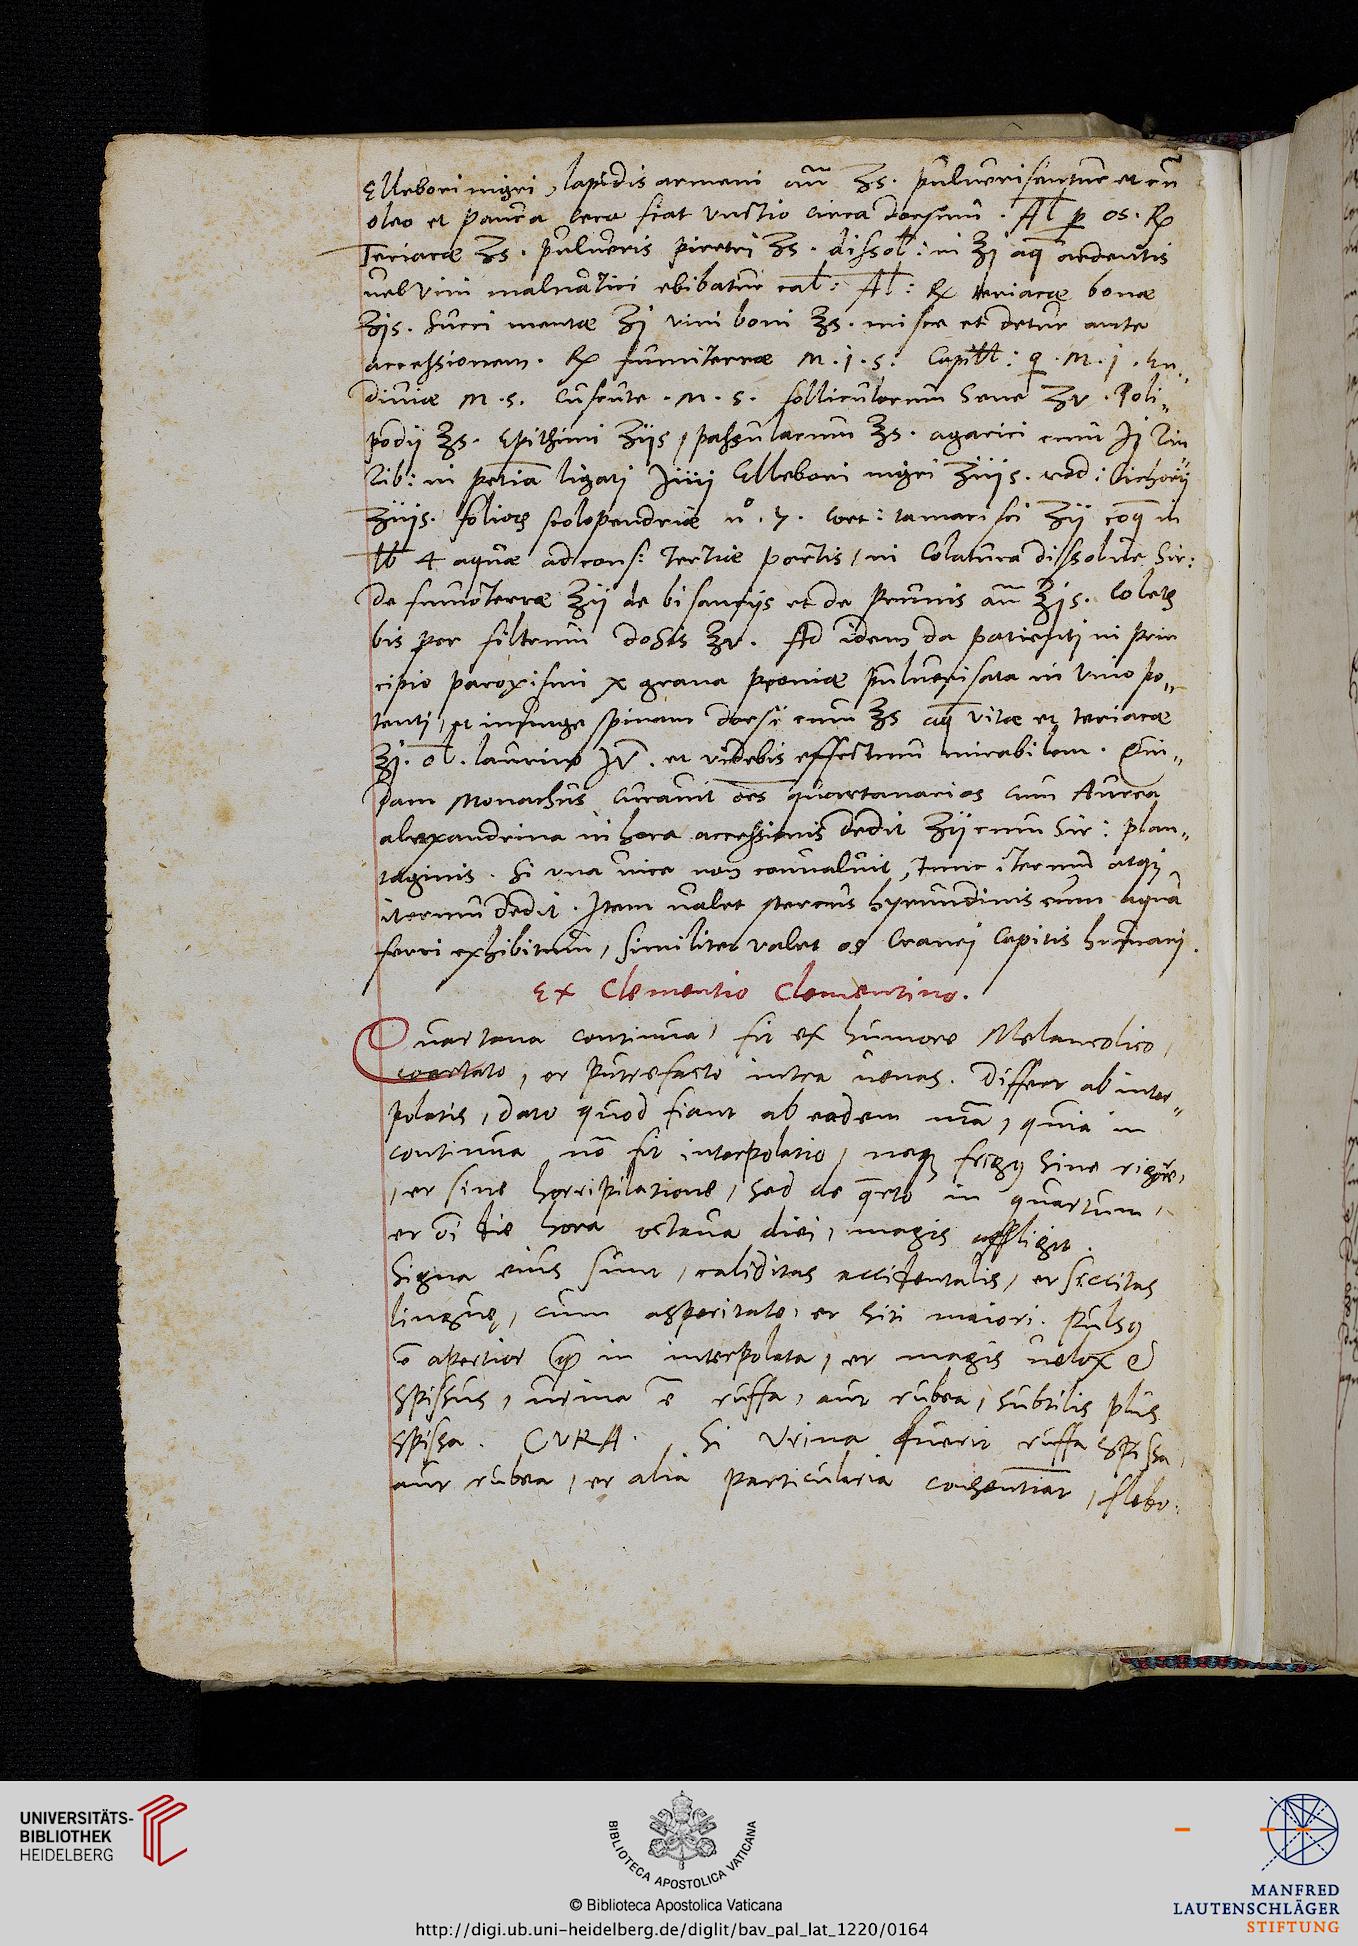 Ellebori nigri, lapidis armeni an̄ ʒs. pulverisentur et cū
oleo et pauca cera fiat unctio circa dorsum. Al̄ ꝑ os. ℞
Teriacæ ʒs. pulveris piretri ʒs. dissol: in ℥j aq̄ ardentis
vel vini malvatici ebibatur cal: Al: ℞ teriacæ bonæ
ʒjs. succi mentæ ℥j vini boni ℥s. misce et detur ante
accessionem. ℞ fumiterræ M.j.s. Capill: q. M.j. En„
diviæ M.s. Cuscute. M.s. folliculorum Sene ʒv. Poli„
podij ℥s. Epithimi ʒijs, passularum ℥s. agarici
in petia ligatj Ellebori nigri ʒiijs. rad: Cichorij
ʒiijs. folioꝝ scolopendriæ n°. 7. cort: tamarisci ʒij coq̄ in
lb 4 aquæ ad cons: tertiæ partis, in Colatura dissolve Sir:
de fumoterræ ℥ij de bisantijs et de Prunis an̄ ℥js. Coletꝰ
bis per filtrum dosis ℥v. Ad idem da patienti in prin
cipio paroxismi x grana peoniæ pulverisata in vino po„
tenti, et inunge spinam dorsi cum ℥s aq̄ vitæ et teriacæ
ʒj. ol. laurino et videbis effectum mirabilem. Qui„
dam Monachus curavit oēs quartanarios cum Aurea
alexandrina in hora accessionis dedit ʒij cum Sir: plan„
taginis. Si una vice non convaluit, tunc iterum atqꝫ
iterum dedit. Item valet stercus hyrundinis cum aqua
ferri exhibitum, similiter valet os Cranej Capitis humanj.
Ex Clementio Clementino.
Quartana continua, fit ex humore Melancolico,
coartato, et putrefacto intra venas. Differt ab inter„
polatis, dato quod fiant ab eadem mā, quia in
continua nō fit interpolatio, neqꝫ frigꝰ sine rigore,
, et sine horripilatione, sed de q̄rto in quartum,
et ōi die hora octava diei, magis affligit.
Signa eius sunt, caliditas accidentalis, et siccitas
linguę, cum asperitate, et siti maiori. Pulsꝰ
ē apertior ꝙ in interpolata, et magis velox &
spissus, urina ē ruffa, aut rubea, subtilis plus
spissa. CVRA. Si Urina fuerit ruffa spissa,
aut rubea, et alia particularia consentiant, flebo.
UNIVERSITÄTS-
BIBLIOTHEK
HEIDELBERG
BIBLIOTECA APOSTOLICA VATICANA
© Biblioteca Apostolica Vaticana
http://digi.ub.uni-heidelberg.de/diglit/bav_pal_lat_1220/0164
MANFRED
LAUTENSCHLÄGER
STIFTUNG